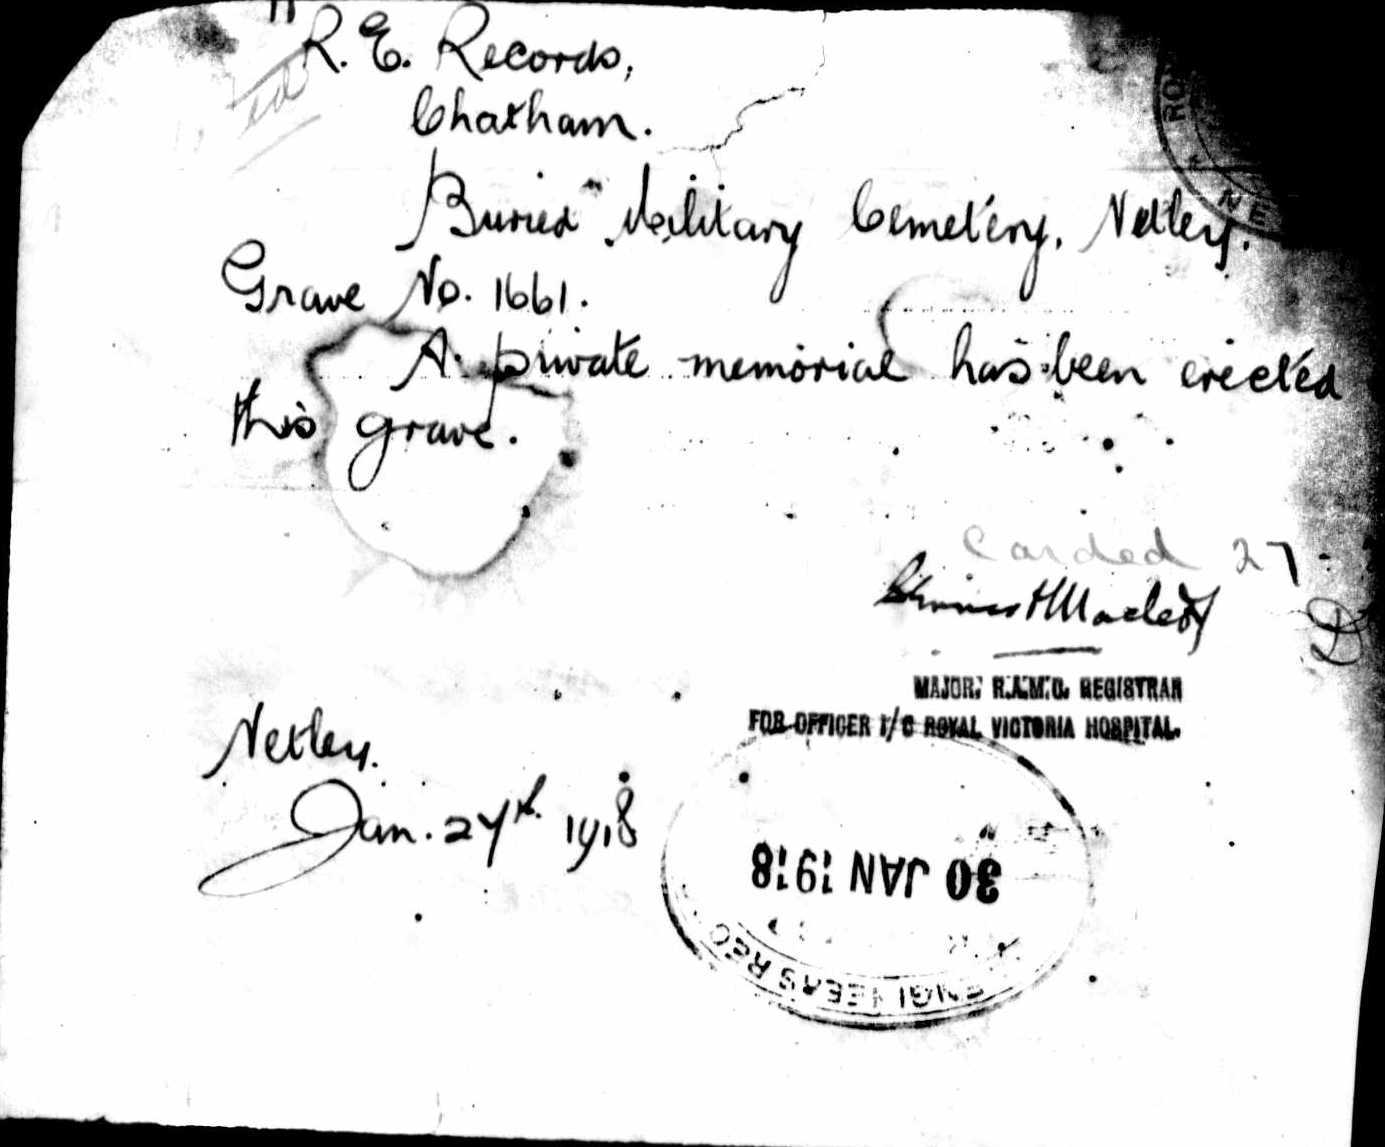 R. E. Records,
Chatham.
Buried Military Cemetery, Netley.
Grave No. 1661.
A private memorial has been erected
this grave.
Carded 27
MAJOR; R.A.M.C. REGISTRAR
FOR OFFICER I/C ROYAL VICTORIA HOSPITAL.
Netley.
Jan. 27th 1918
30 JAN 1918
ENGINEERS REC